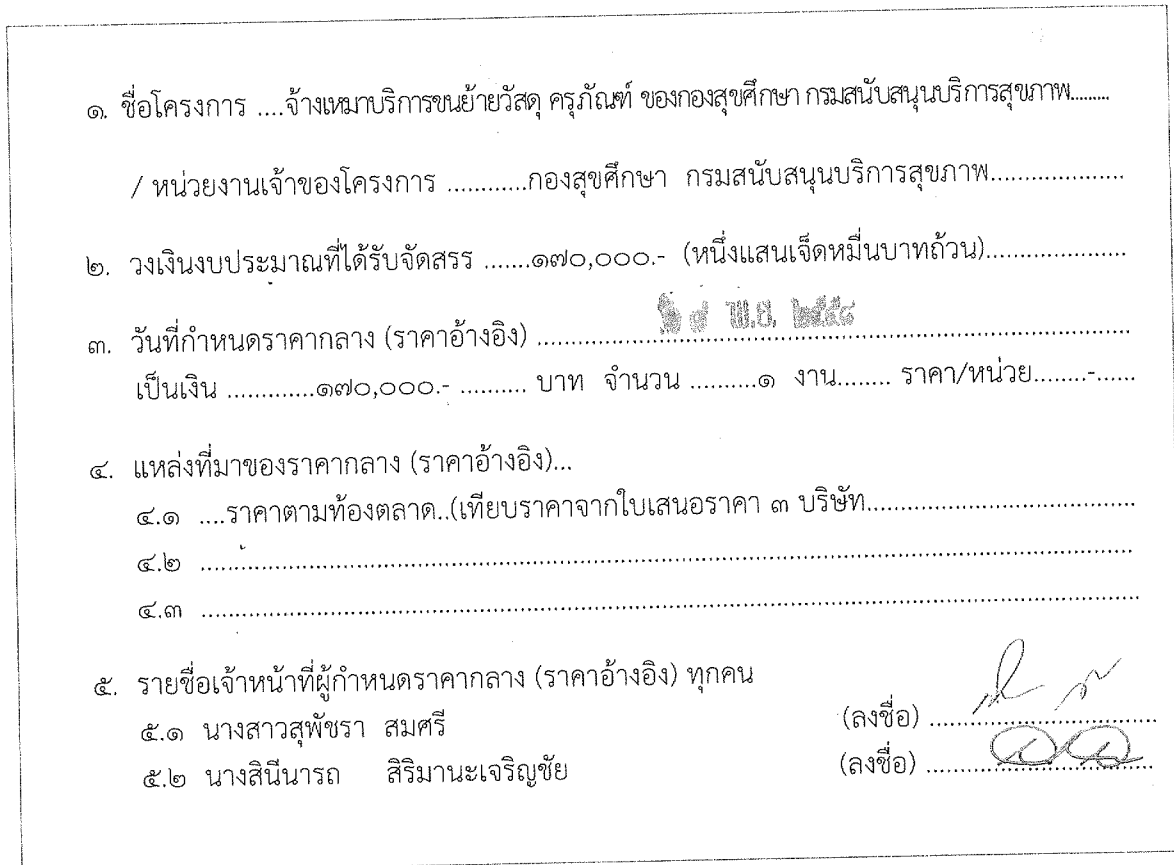 ๑. ชื่อโครงการ ....จ้างเหมาบริการขนย้ายวัสดุ ครุภัณฑ์ ของกองสุขศึกษา กรมสนับสนุนบริการสุขภาพ.........
/ หน่วยงานเจ้าของโครงการ ............กองสุขศึกษา กรมสนับสนุนบริการสุขภาพ.....................
๒. วงเงินงบประมาณที่ได้รับจัดสรร .......๑๗๐,๐๐๐.- (หนึ่งแสนเจ็ดหมื่นบาทถ้วน).....................
๓. วันที่กำหนดราคากลาง (ราคาอ้างอิง) ..................... พ.ย. ๒๕๕๘ .....................
เป็นเงิน .............๑๗๐,๐๐๐.- .......... บาท จำนวน ..........๑ งาน........ ราคา/หน่วย........-......
๔. แหล่งที่มาของราคากลาง (ราคาอ้างอิง)...
๔.๑ ....ราคาตามท้องตลาด..(เทียบราคาจากใบเสนอราคา ๓ บริษัท.......................................
๔.๒ ..........................................................................................
๔.๓ ..........................................................................................
๕. รายชื่อเจ้าหน้าที่ผู้กำหนดราคากลาง (ราคาอ้างอิง) ทุกคน
๕.๑ นางสาวสุพัชรา สมศรี (ลงชื่อ) .................................
๕.๒ นางสินีนารถ สิริมานะเจริญชัย (ลงชื่อ) .................................